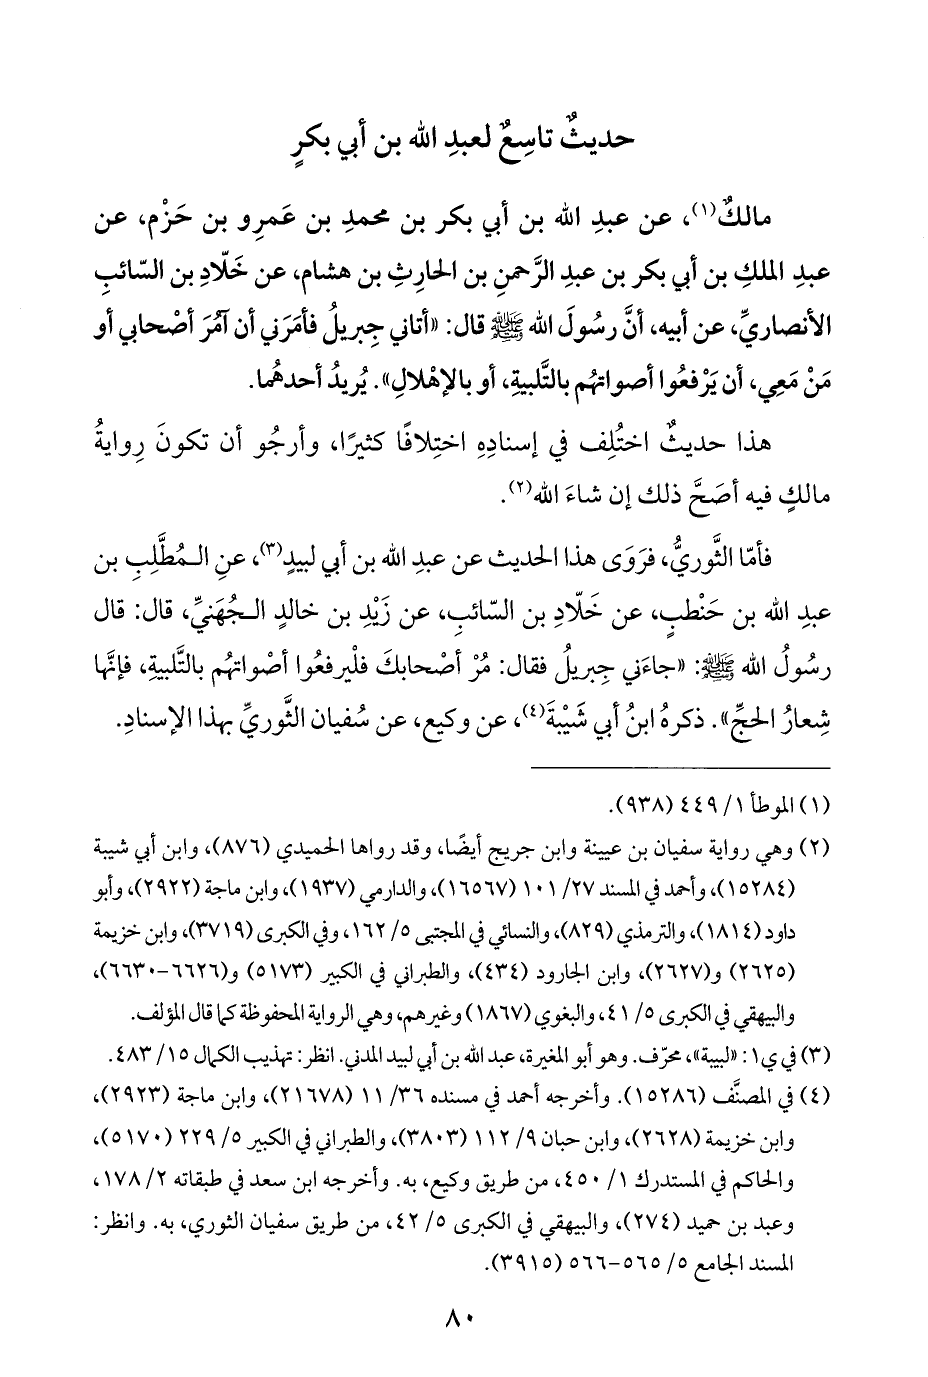 حديثٌ تاسِعٌ لعبدِ الله بن أبي بكرٍ
مالكٌ(١)، عن عبدِ الله بن أبي بكر بن محمدِ بن عَمرِو بن حَزْم، عن
عبدِ الملكِ بن أبي بكر بن عبدِ الرَّحمنِ بن الحارِثِ بن هشام، عن خَلّادِ بن السّائبِ
الأنصاريِّ، عن أبيه، أنَّ رسُولَ الله ﷺ قال: «أتاني جِبريلُ فأمَرَني أن آمُرَ أصْحابي أو
مَنْ مَعِي، أن يَرْفعُوا أصواتهُم بالتَّلبيةِ، أو بالإهْلالِ». يُريدُ أحدهُما.
هذا حديثٌ اختُلِف في إسنادِهِ اختِلافًا كثيرًا، وأرجُو أن تكونَ رِوايةُ
مالكٍ فيه أصَحَّ ذلك إن شاءَ الله(٢).
فأمّا الثَّوريُّ، فرَوَى هذا الحديث عن عبدِ الله بن أبي لبيدٍ(٣)، عنِ المُطَّلِبِ بن
عبدِ الله بن حَنْطبٍ، عن خَلّادِ بن السّائبِ، عن زَيْدِ بن خالدٍ الجُهَنيِّ، قال: قال
رسُولُ الله ﷺ: «جاءَني جِبريلُ فقال: مُرْ أصْحابكَ فلْيرفعُوا أصْواتهُم بالتَّلبيةِ، فإنَّها
شِعارُ الحجِّ». ذكرهُ ابنُ أبي شَيْبةَ(٤)، عن وكيع، عن سُفيان الثَّوريِّ بهذا الإسنادِ.
(١) الموطأ ١/ ٤٤٩ (٩٣٨).
(٢) وهي رواية سفيان بن عيينة وابن جريج أيضًا، وقد رواها الحميدي (٨٧٦)، وابن أبي شيبة
(١٥٢٨٤)، وأحمد في المسند ٢٧/ ١٠١ (١٦٥٦٧)، والدارمي (١٩٣٧)، وابن ماجة (٢٩٢٢)، وأبو
داود (١٨١٤)، والترمذي (٨٢٩)، والنسائي في المجتبى ٥/ ١٦٢، وفي الكبرى (٣٧١٩)، وابن خزيمة
(٢٦٢٥) و(٢٦٢٧)، وابن الجارود (٤٣٤)، والطبراني في الكبير (٥١٧٣) و(٦٦٢٦-٦٦٣٠)،
والبيهقي في الكبرى ٥/ ٤١، والبغوي (١٨٦٧) وغيرهم، وهي الرواية المحفوظة كما قال المؤلف.
(٣) في ي١: «لبيبة»، محرّف. وهو أبو المغيرة، عبد الله بن أبي لبيد المدني. انظر: تهذيب الكمال ١٥/ ٤٨٣.
(٤) في المصنَّف (١٥٢٨٦). وأخرجه أحمد في مسنده ٣٦/ ١١ (٢١٦٧٨)، وابن ماجة (٢٩٢٣)،
وابن خزيمة (٢٦٢٨)، وابن حبان ٩/ ١١٢ (٣٨٠٣)، والطبراني في الكبير ٥/ ٢٢٩ (٥١٧٠)،
والحاكم في المستدرك ١/ ٤٥٠، من طريق وكيع، به. وأخرجه ابن سعد في طبقاته ٢/ ١٧٨،
وعبد بن حميد (٢٧٤)، والبيهقي في الكبرى ٥/ ٤٢، من طريق سفيان الثوري، به. وانظر:
المسند الجامع ٥/ ٥٦٥-٥٦٦ (٣٩١٥).
٨٠